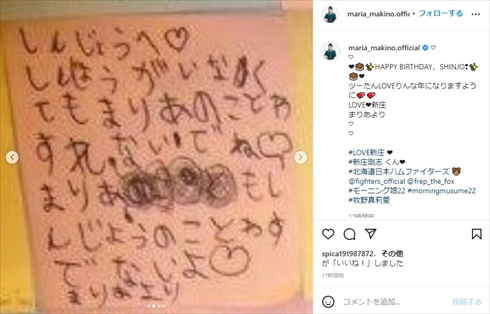 しんじょうへ♡
しんじょうがいなく
てもまりあのことわ
すれないでね♡
まりあ もし
んじょうのことわす
でないよ♡
まりあより
maria_makino.offic... ・フォローする
maria_makino.official
♡
❤🎂HAPPY BIRTHDAY，SHINJO❣🎂❤
ツーたんLOVEりんな年になりますように
LOVE❤新庄
まりあより
♡
♡
#LOVE新庄 ❤
#新庄剛志 くん❤
#北海道日本ハムファイターズ 🐻
@fighters_official @frep_the_fox
#モーニング娘22 #morningmusume22
#牧野真莉愛
spica191987872、その他
が「いいね！」しました
17時間前
コメントを追加...
投稿する